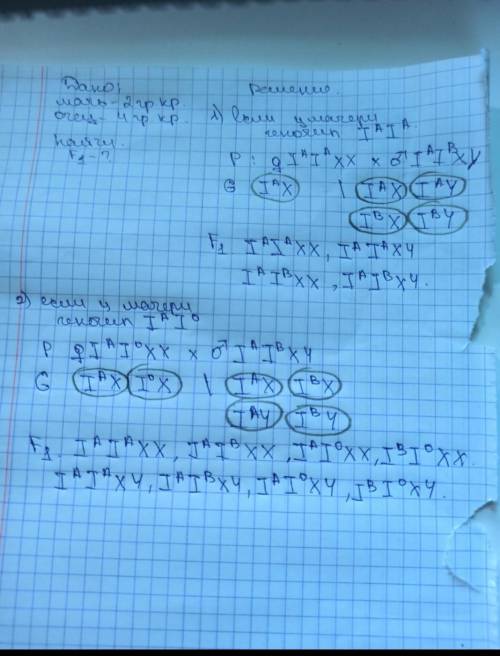 Дано:
мать - 2 гр кр.
отец - 4 гр кр.
найти
F1 - ?
Решение.
1) если у матери
генотип IᴬIᴬ
P: ♀ IᴬIᴬXX × ♂ IᴬIᴮXY
G IᴬX | IᴬX IᴬY
IᴮX IᴮY
F1 IᴬIᴬXX, IᴬIᴬXY
IᴬIᴮXX, IᴬIᴮXY.
2) если у матери
генотип IᴬI⁰
P ♀IᴬI⁰XX × ♂ IᴬIᴮXY
G IᴬX I⁰X | IᴬX IᴮX
IᴬY IᴮY
F1 IᴬIᴬXX, IᴬIᴮXX, IᴬI⁰XX, IᴮI⁰XX.
IᴬIᴬXY, IᴬIᴮXY, IᴬI⁰XY, IᴮI⁰XY.